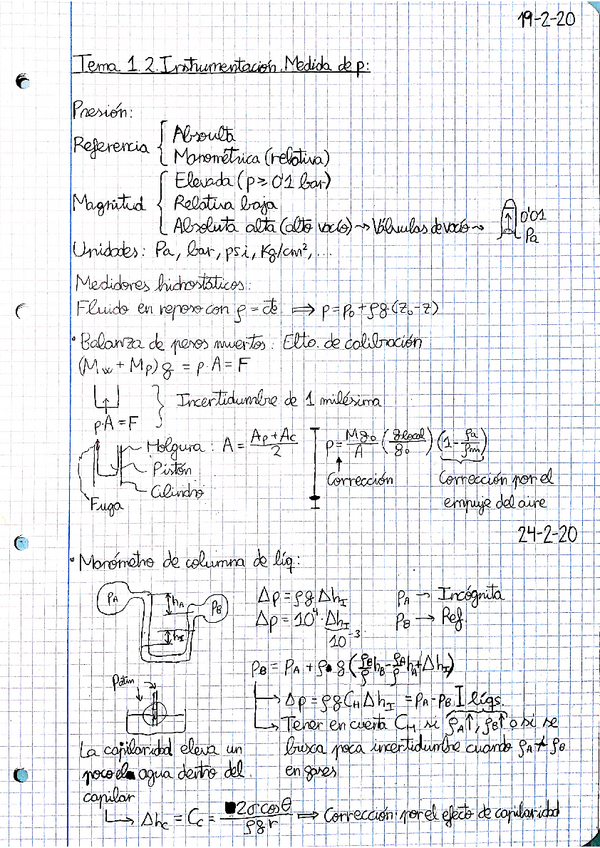 19-2-20
Tema 1.2. Instrumentación. Medida de p:
Presión:
Referencia { Absoulta
Manométrica (relativa)
Magnitud { Elevada (p ≥ 0'1 bar)
Relativa baja
Absoluta alta (alto vacío) → Válvulas de vacío → 0'01 Pa
Unidades: Pa, bar, psi, Kg/cm², ...
Medidores hidrostáticos:
Fluido en reposo con ρ = cte ⇒ p = p₀ + ρg(z₀-z)
• Balanza de pesos muertos: Elto. de calibración
(Mw + Mp)g = p·A = F
} Incertidumbre de 1 milésima
p·A = F
Holgura: A = (Ap + Ac)/2
Pistón
Cilindro
Fuga
p = (Mg₀/A) (glocal/g₀) (1 - ρa/ρm)
Corrección
Corrección por el
empuje del aire
24-2-20
• Manómetro de columna de líq:
PA hA PB hI
Δp = ρgΔhI
Δp = 10⁴·ΔhI
10⁻³
PA → Incógnita
PB → Ref.
PB = PA + ρ·g(ρB/ρ hB - ρA/ρ hA + ΔhI)
Δp = ρgCHΔhI = PA - PB I líqs.
Tener en cuenta CH si ρA↑, ρB↑ o si se
busca poca incertidumbre cuando ρA ≠ ρB
en gases
Patm
La capilaridad eleva un
poco el agua dentro del
capilar
Δhc = Cc = 2σcosθ/ρgr ⇒ Corrección por el efecto de capilaridad